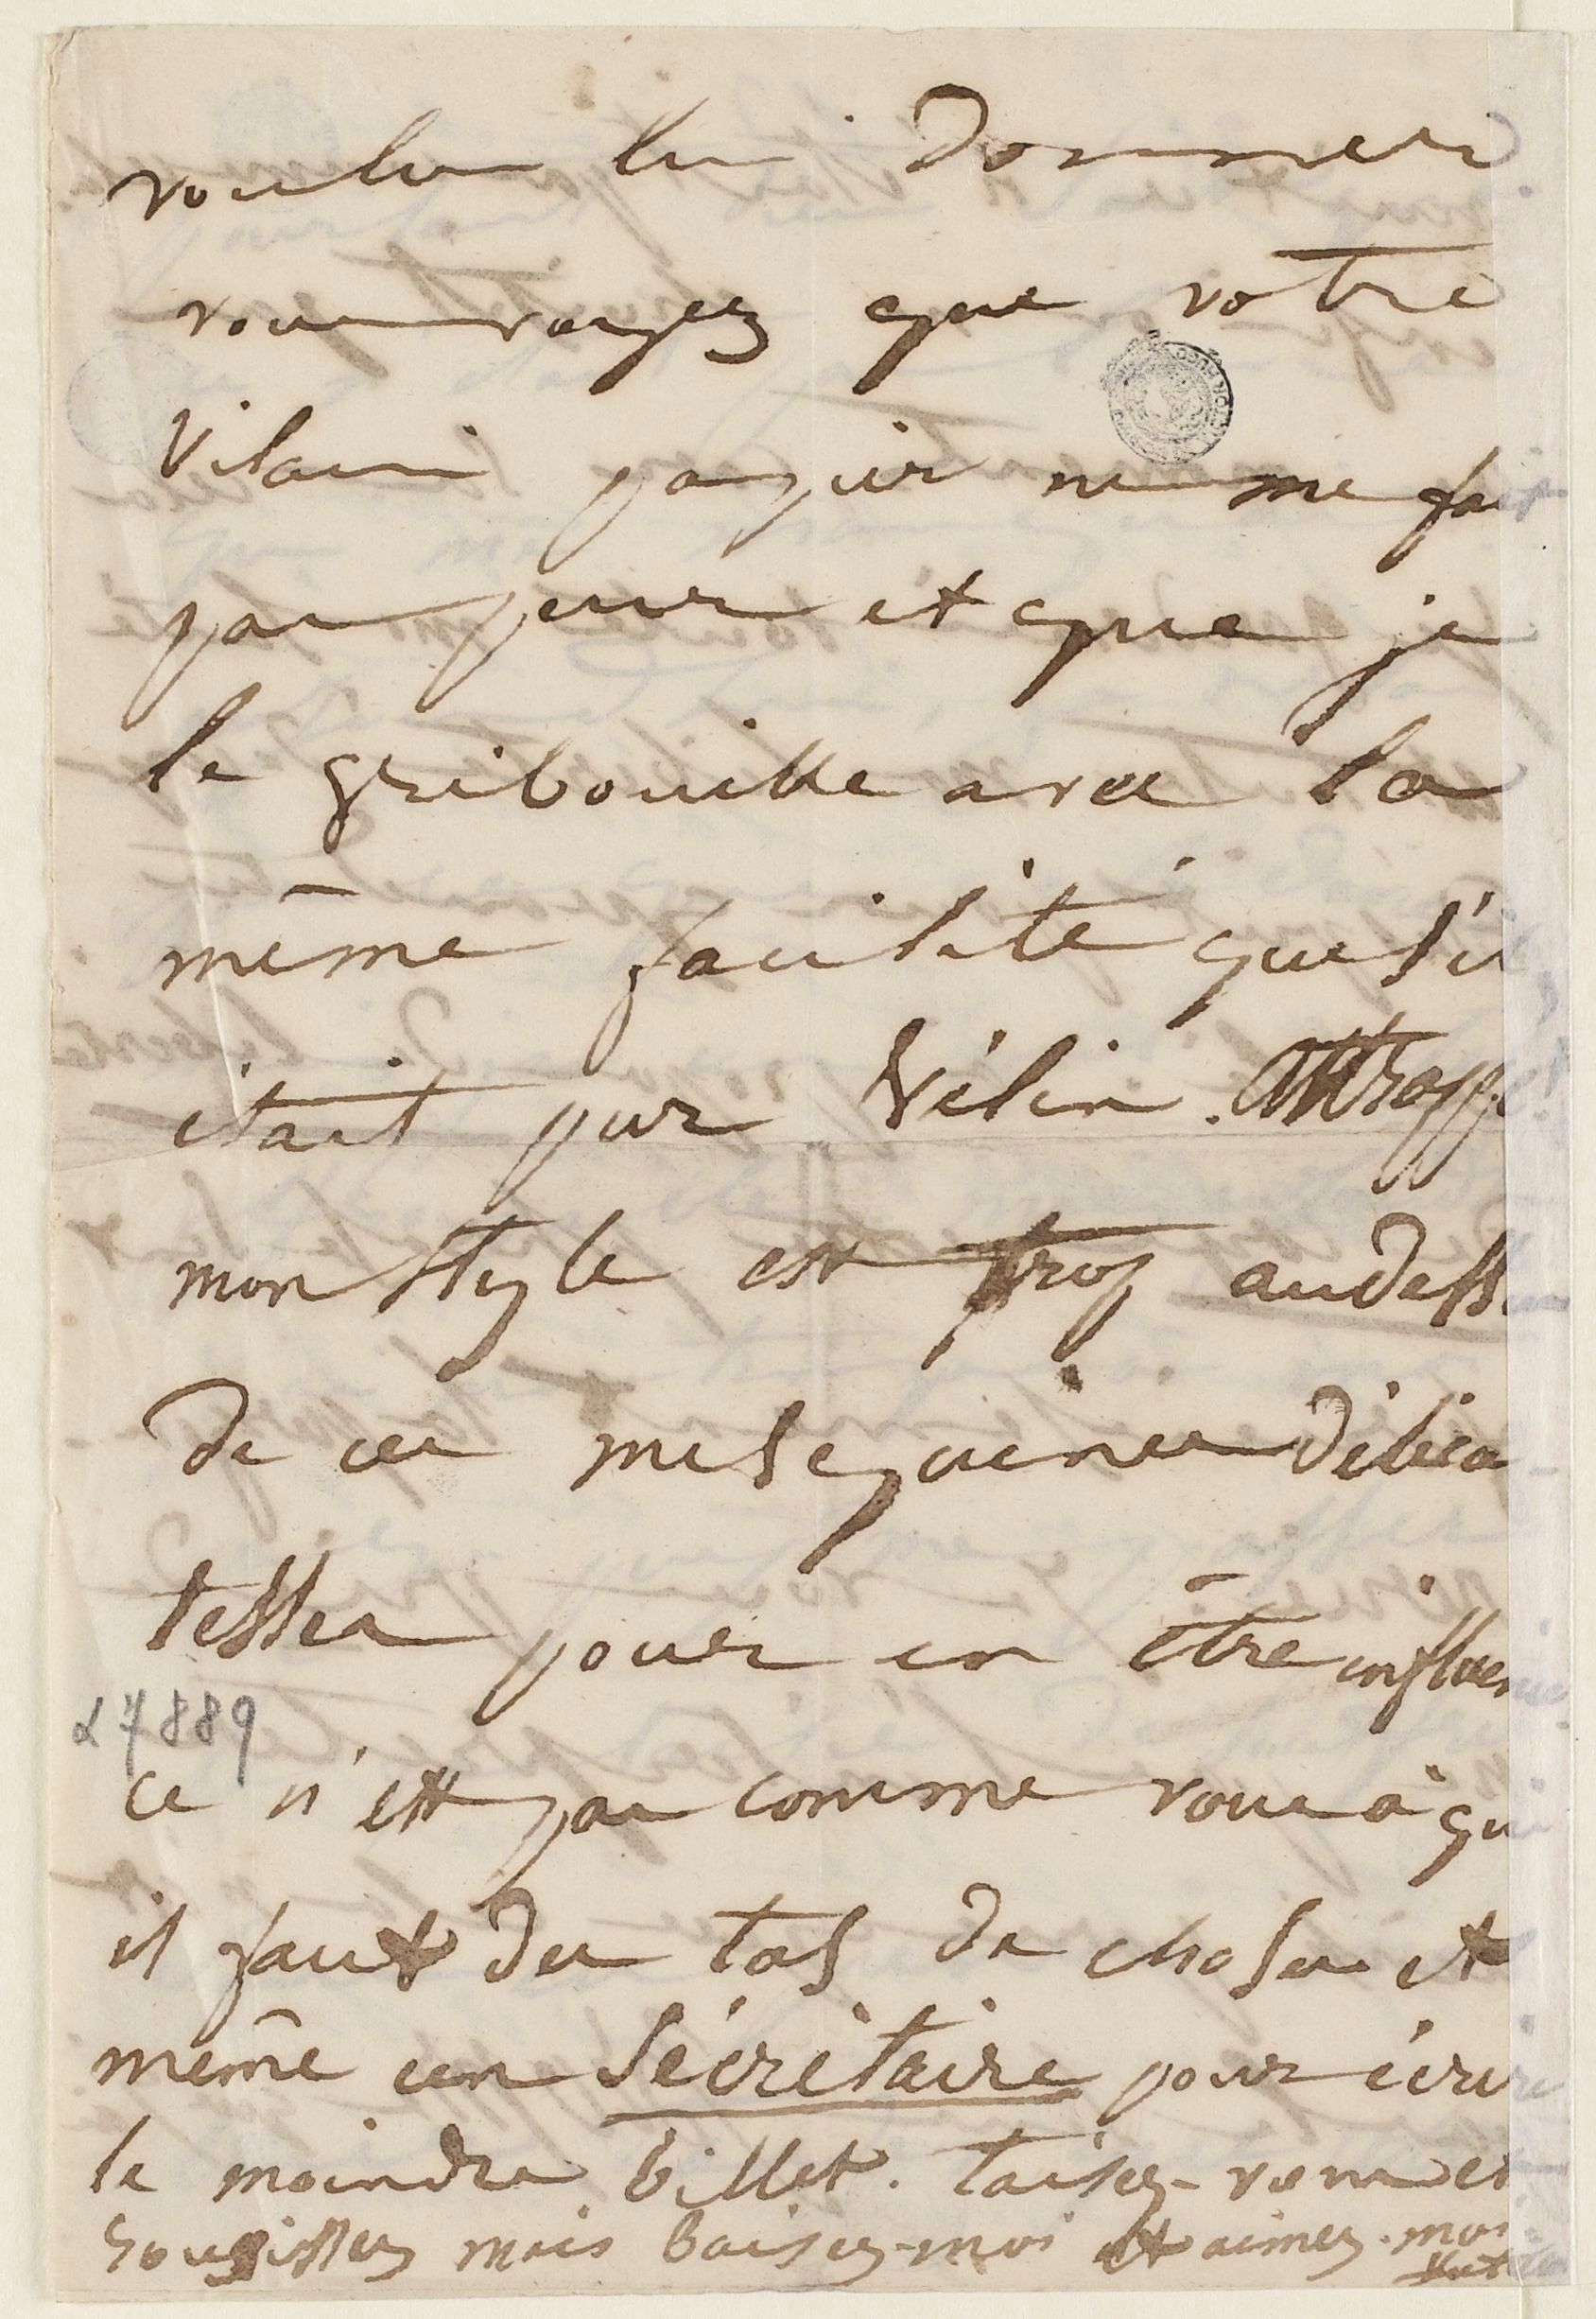 voulu lui donner
vous voyez que votre
vilain papier ne me fait
pas peur et que je
le gribouille avec la
même facilité que s'il
était pur vélin. Attrappé
mon style est trop audessus
de ces mesquines délica
tesses pour en être influencé
ce n'est pas comme vous à qui
il faut des tas de choses et
même un sécrétaire pour écrire
le moindre billet. Taisez-vous et
rougissez mais baisez-moi et aimez-moi
27889